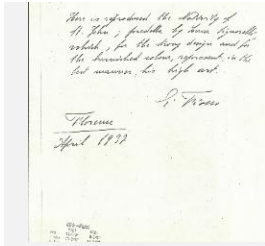 Here is reproduced the Nativity of
St. John, predella by Luca Signorelli
which, for the strong design and for
the burnished colour, represent, in the
best manner, his high art.
Florence
April 1932